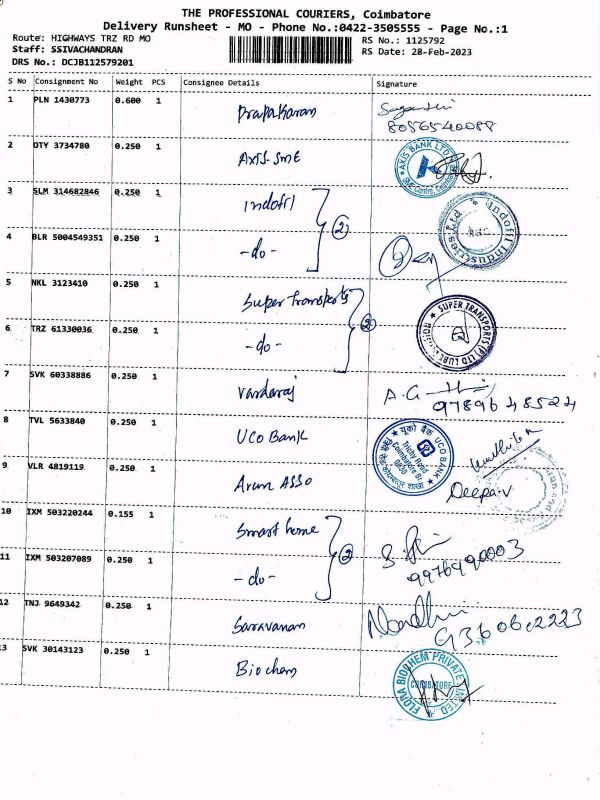 THE PROFESSIONAL COURIERS, Coimbatore
Delivery Runsheet - MO - Phone No.:0422-3505555 - Page No.:1
Route: HIGHWAYS TRZ RD MO
RS No.: 1125792
Staff: SSIVACHANDRAN
RS Date: 28-Feb-2023
DRS No.: DCJB112579201
S No Consignment No Weight PCS Consignee Details Signature
1 PLN 1430773 0.600 1 Prapakaran
8056540088
2 OTY 3734780 0.250 1 Axis-SME
AXIS BANK LTD
3 SLM 314682846 0.250 1 Indofil
(2)
Indofil Industries Ltd
4 BLR 5004549351 0.250 1 -do-
5 NKL 3123410 0.250 1 Super transports
(2)
SUPER TRANSPORTS (P) LTD
6 TRZ 61330036 0.250 1 -do-
7 SVK 60338886 0.250 1 Vardaraj
9789648524
8 TVL 5633840 0.250 1 UCO Bank
यूको बैंक UCO BANK
Trichy Road
Coimbatore Br.
0630
9 VLR 4819119 0.250 1 Arun ASSO
Deepa.V
10 IXM 503220244 0.155 1 Smart home
(2)
11 IXM 503207089 0.250 1 -do-
9976990003
12 TNJ 9649342 0.250 1 Saravanan
Nandhini
13 SVK 30143123 0.250 1 Biochem
FLORA BIOCHEM PRIVATE LIMITED
COIMBATORE